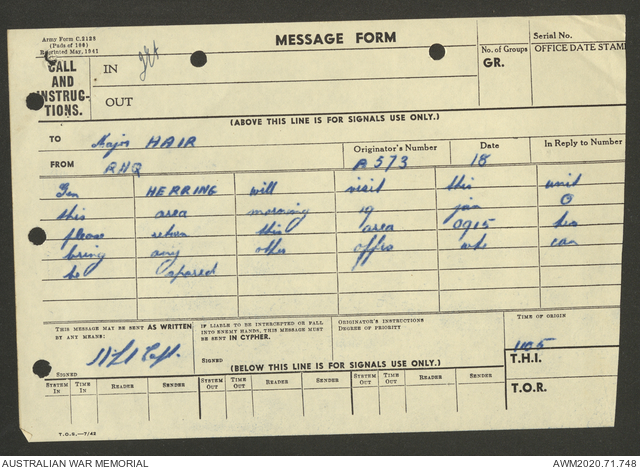 Army Form C.2128
(Pads of 100)
Reprinted May, 1941
MESSAGE FORM
Serial No.
CALL AND INSTRUCTIONS.
IN
OUT
No. of Groups
GR.
OFFICE DATE STAM
(ABOVE THIS LINE IS FOR SIGNALS USE ONLY.)
TO Major HAIR
FROM RHQ
Originator's Number
573
Date
18
In Reply to Number
Gen HERRING will visit this unit
this area morning 19 jan O
please return this area 0915 hrs
bring any other offrs who can
be spared
THIS MESSAGE MAY BE SENT AS WRITTEN
BY ANY MEANS:
SIGNED
IF LIABLE TO BE INTERCEPTED OR FALL
INTO ENEMY HANDS, THIS MESSAGE MUST
BE SENT IN CYPHER.
SIGNED
ORIGINATOR'S INSTRUCTIONS
DEGREE OF PRIORITY
TIME OF ORIGIN
1105
T.H.I.
T.O.R.
(BELOW THIS LINE IS FOR SIGNALS USE ONLY.)
SYSTEM IN TIME IN READER SENDER SYSTEM OUT TIME OUT READER SENDER SYSTEM OUT TIME OUT READER SENDER
T.O.S.—7/42
AUSTRALIAN WAR MEMORIAL
AWM2020.71.748